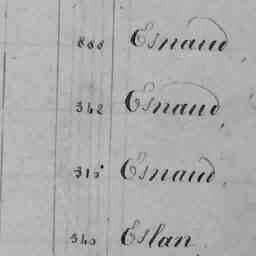 888 Esnaud
342 Esnaud
315 Esnaud
340 Eslan